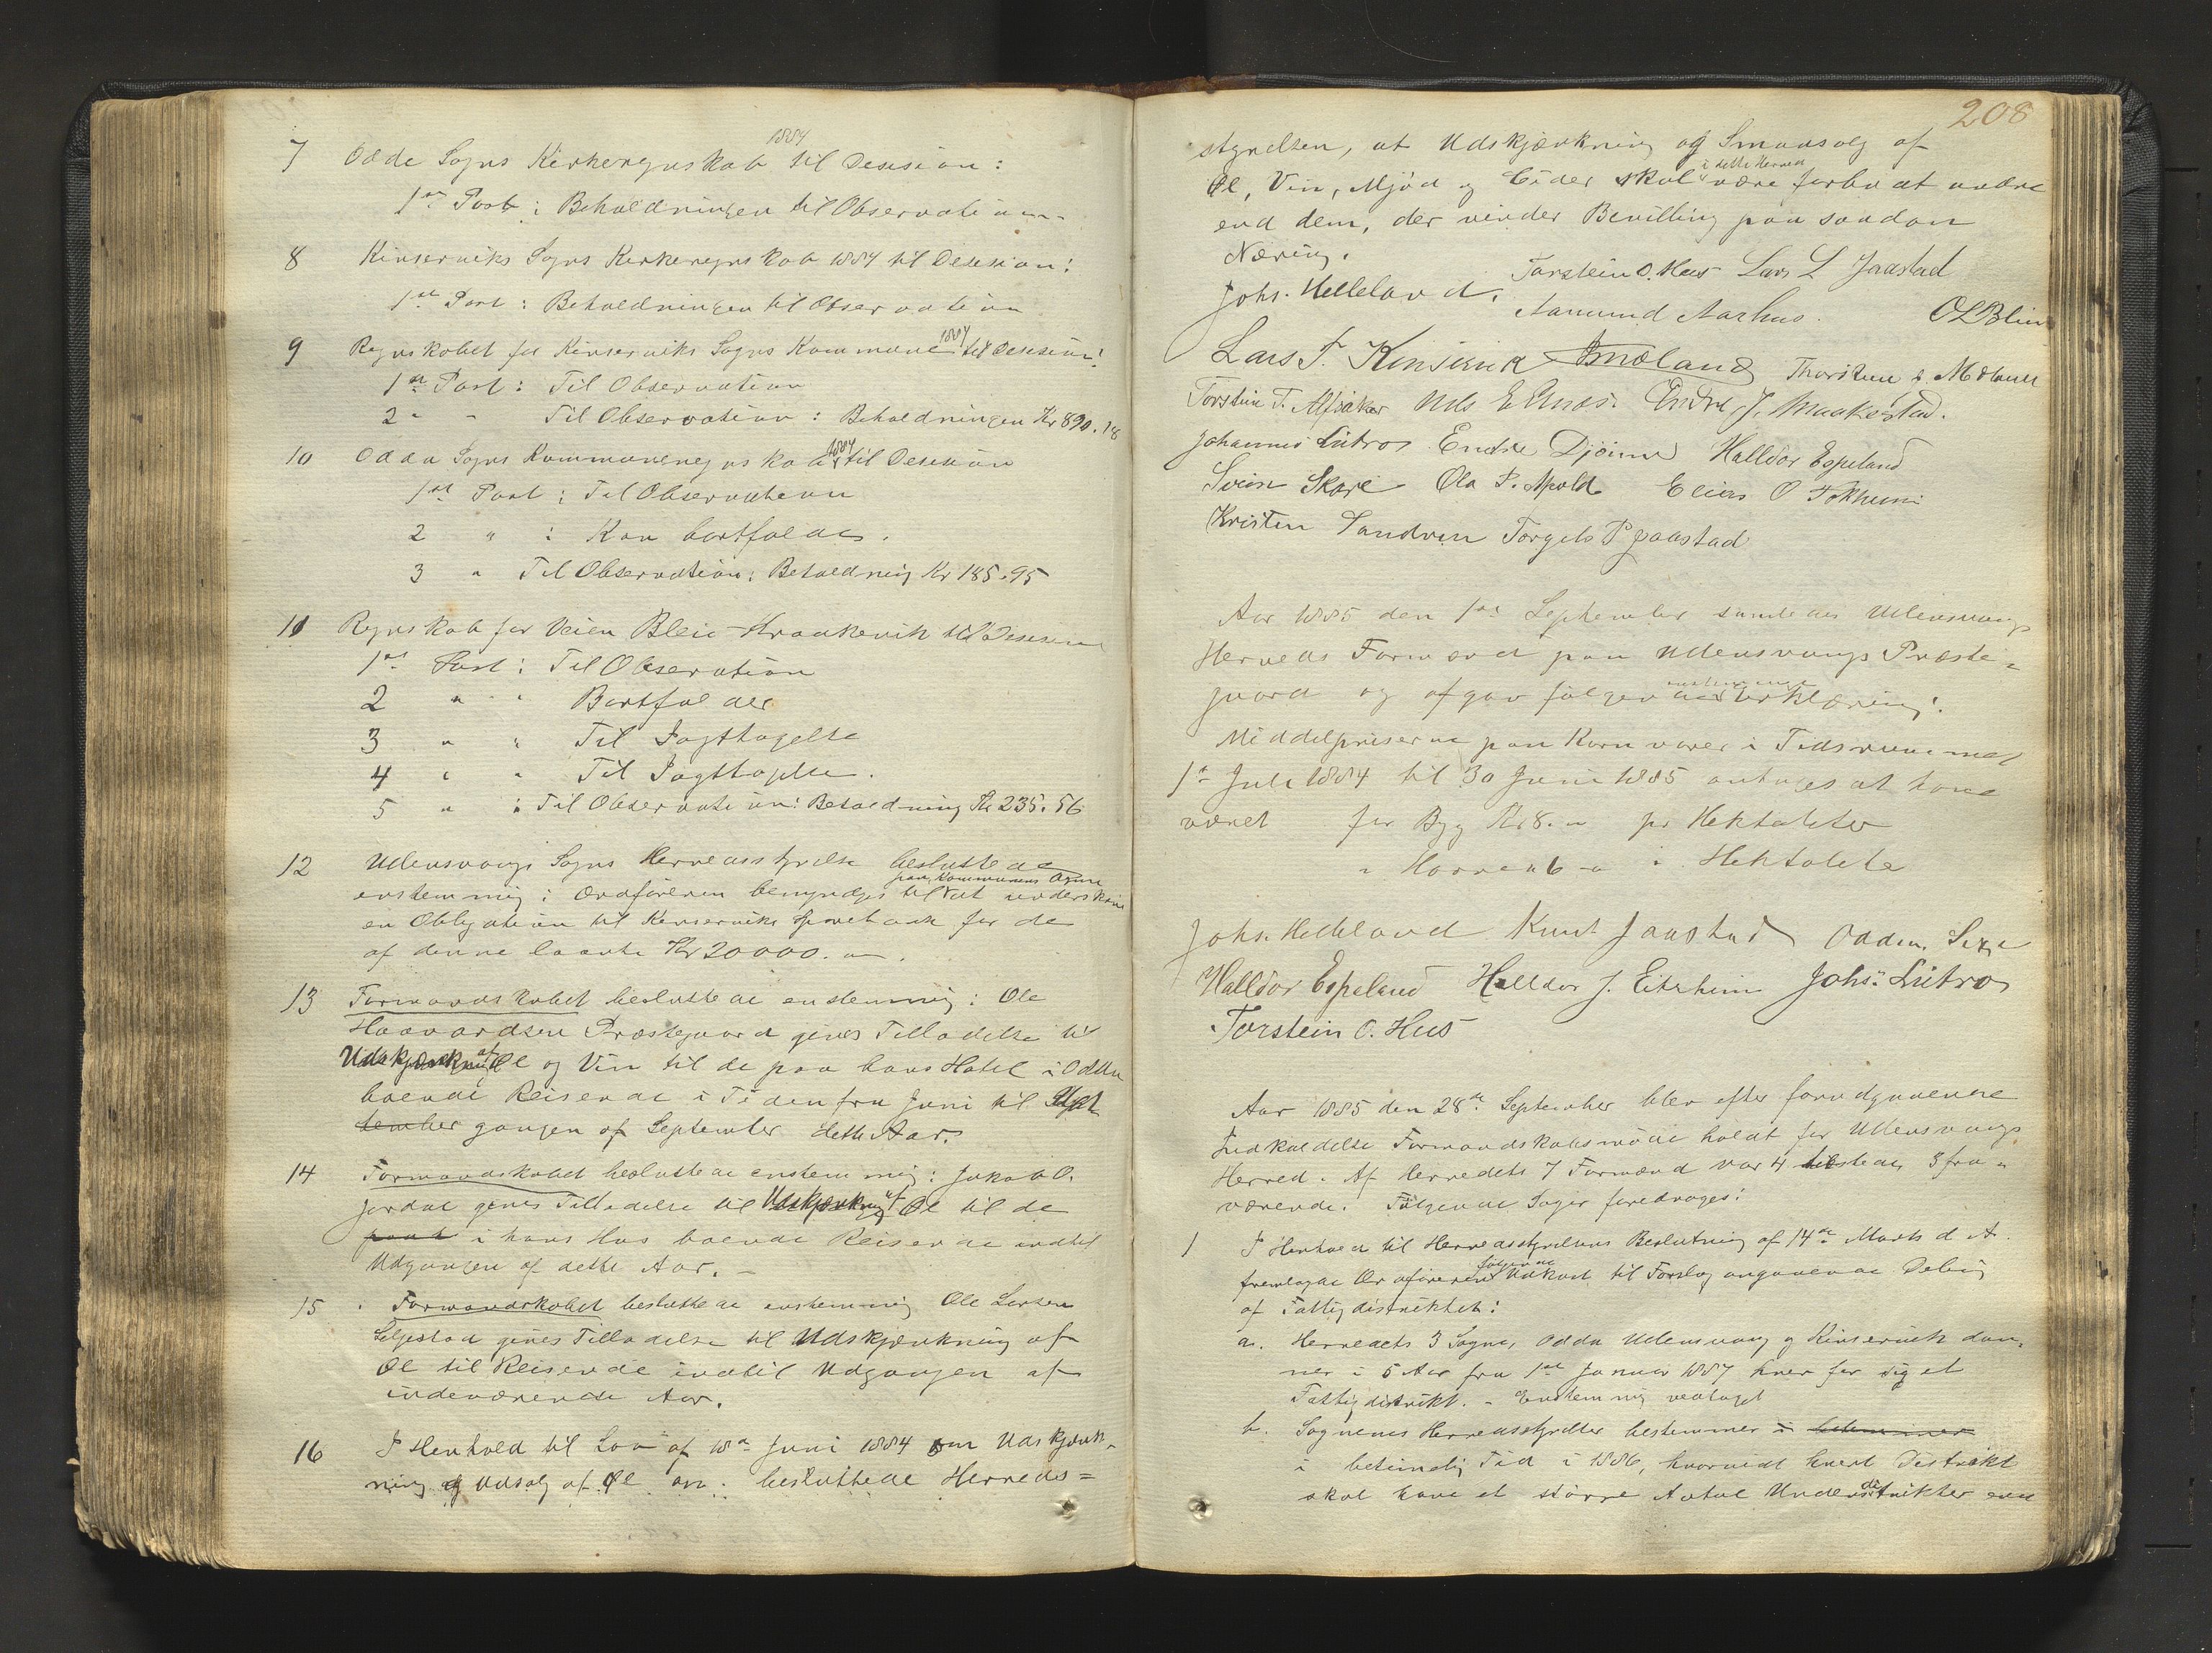 7 Odde Sogns Kirkeregnskab 1884 til Desision:
1ste Post: Beholdningen til Observation.
8 Kinserviks Sogns Kirkeregnskab 1884 til Desision:
1ste Post: Beholdningen til Observation
9 Regnskabet for Kinserviks Sogns Kommune 1884 til Desision:
1ste Post: Til Observation
2 " " Til Observation: Beholdningen Kr 890.18
10 Odda Sogns Kommuneregnskab 1884 til Desision
1ste Post: Til Observation
2 " : Kan bortfalde.
3 " Til Observation: Beholdning Kr 185.95
11 Regnskab for Veien Bleie-Kraakevik til Desision
1ste Post: Til Observation
2 " " Bortfalder
3 " " Til Iagttagelse
4 " " Til Iagttagelse.
5 " : Til Observation: Beholdning Kr 235.56
12 Ullensvangs Sogns Herredsstyrelse besluttede
enstemmig: Ordføreren bemyndiges til paa Kommunens Vegne at underskrive
en Obligation til Kinserviks Sparebank for de
af denne laante Kr 20000. "
13 Formandskabet besluttede enstemmig: Ole
Haavardsen Præstegaard gives Tilladelse til
Udskjænkning af Øl og Vin til de paa hans Hotel i Odda
boende Reisende i Tiden fra Juni til Udgangen
tember gangen af September dette Aar.
14 Formandskabet besluttede enstemmig: Jakob O.
Jordal gives Tilladelse til Udskjænkning af Øl til de
paa i hans Hus boende Reisende indtil
Udgangen af dette Aar. —
15 Formandskabet besluttede enstemmig Ole Larsen
Seljestad gives Tilladelse til Udskjænkning af
Øl til Reisende indtil Udgangen af
indeværende Aar.
16 I Henhold til Lov af 18de Juni 1884 om Udskjænk-
ning og Udsalg af Øl m. besluttede Herreds=
208
styrelsen, at Udskjænkning og Smaasalg af
Øl, Vin, Mjød og Cider skal i dette Herred være forbudt andre
end dem, der vinder Bevilling paa saadan
Næring.
Johs. Helleland. Torstein O. Hus Lars L Jaastad
Aamund Aarhus. O L Blie
Lars T. Kinservik Smoland Thorstein
Torstein T. Alsaker Nils E Enæs. Endre J. Maakestad.
Johannes Lutro Endre Djønne Halldor Espeland
Svein Skare Ola P. Apold Elias O Tokheim
Kristen Sandven Torgels P Jaastad
Aar 1885 den 1ste September samledes Ullensvangs
Herreds Formænd paa Ullensvangs Præste-
gaard og afgav følgende enstemmige Erklæring:
Middelpriserne paa Kornvarer i Tidsrummet
1ste Juli 1884 til 30 Juni 1885 antages at have
været for Byg Kr 8. " pr Hektoliter
" Havren 6 " " Hektoliter
Johs. Helleland Knut Jaastad Oddm. Sexe
Halldor Espeland Halldor J. Eitrheim Johs: Lutro
Torstein O. Hus
Aar 1885 den 28de September blev efter forudgaaende
Indkaldelse Formandskabsmøde holdt for Ullensvangs
Herred. Af Herredets 7 Formænd var 4 tilstede, 3 fra-
værende. Følgende Sager foredroges:
1 I Henhold til Herredsstyrelsens Beslutning af 14de Marts d. A.
fremlagde Ordføreren følgende Udkast til Forslag angaaende Deling
af Fattigdistriktet:
a. Herredets 3 Sogne, Odda Ullensvang og Kinservik dan-
ner i 5 Aar fra 1ste Januar 1887 hver for sig et
Fattigdistrikt. - Enstemmig vedtaget
b. Sognenes Herredsstyrelser bestemmer i bestemmer
i betimelig Tid i 1886, hvorvidt hvert Distrikt
skal have et større Antal Underdistrikter end